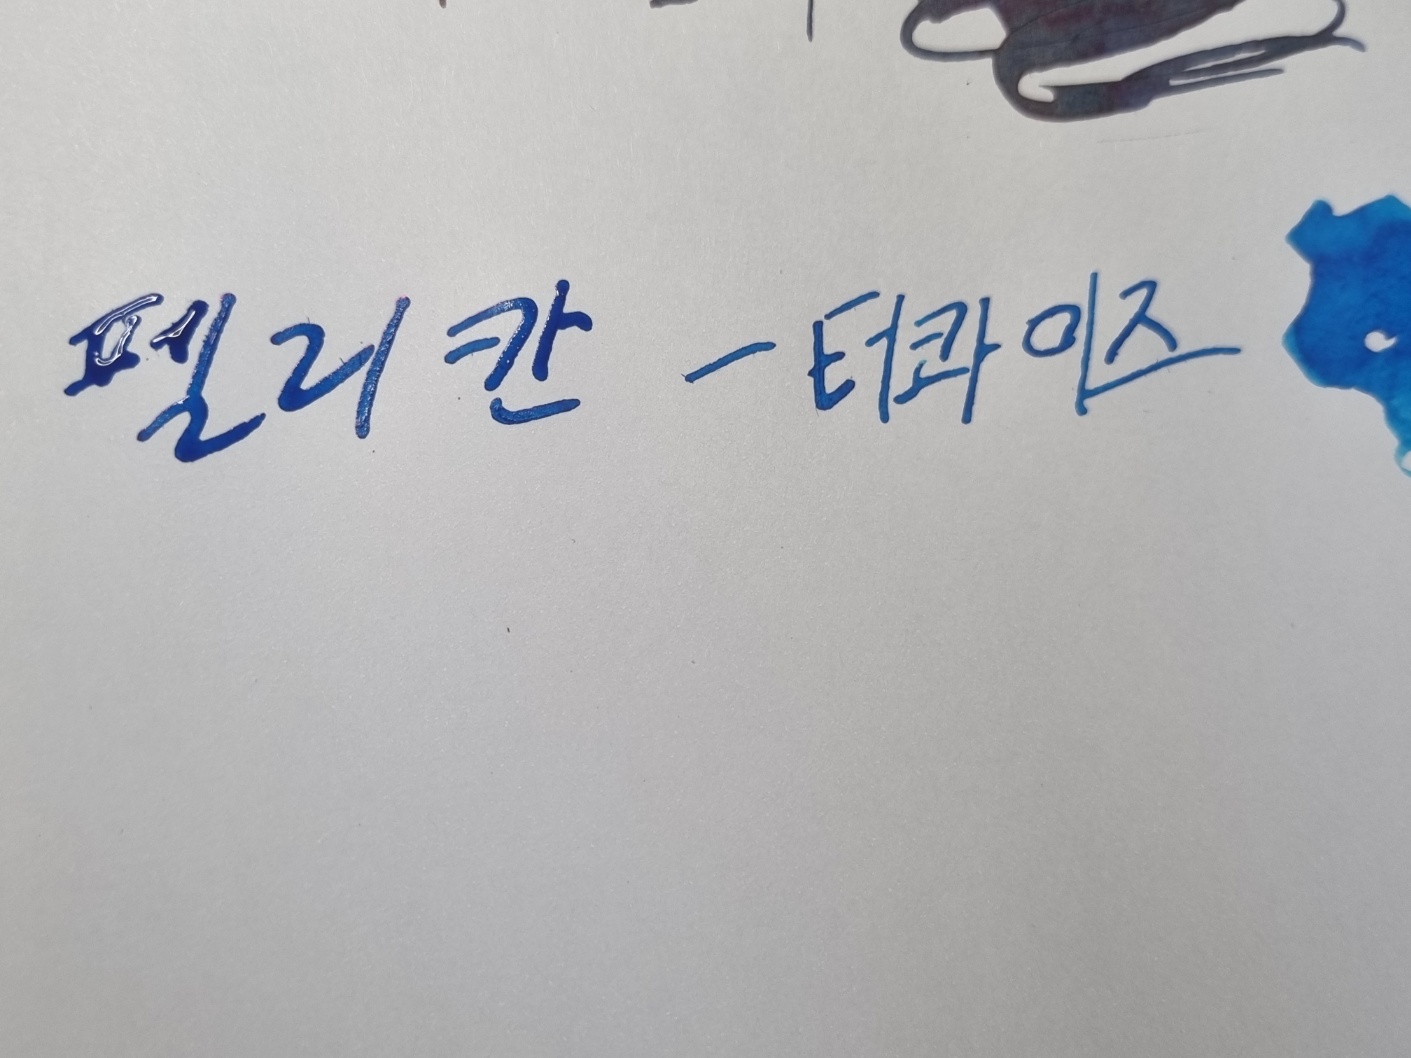 펠리칸 - 터콰이즈